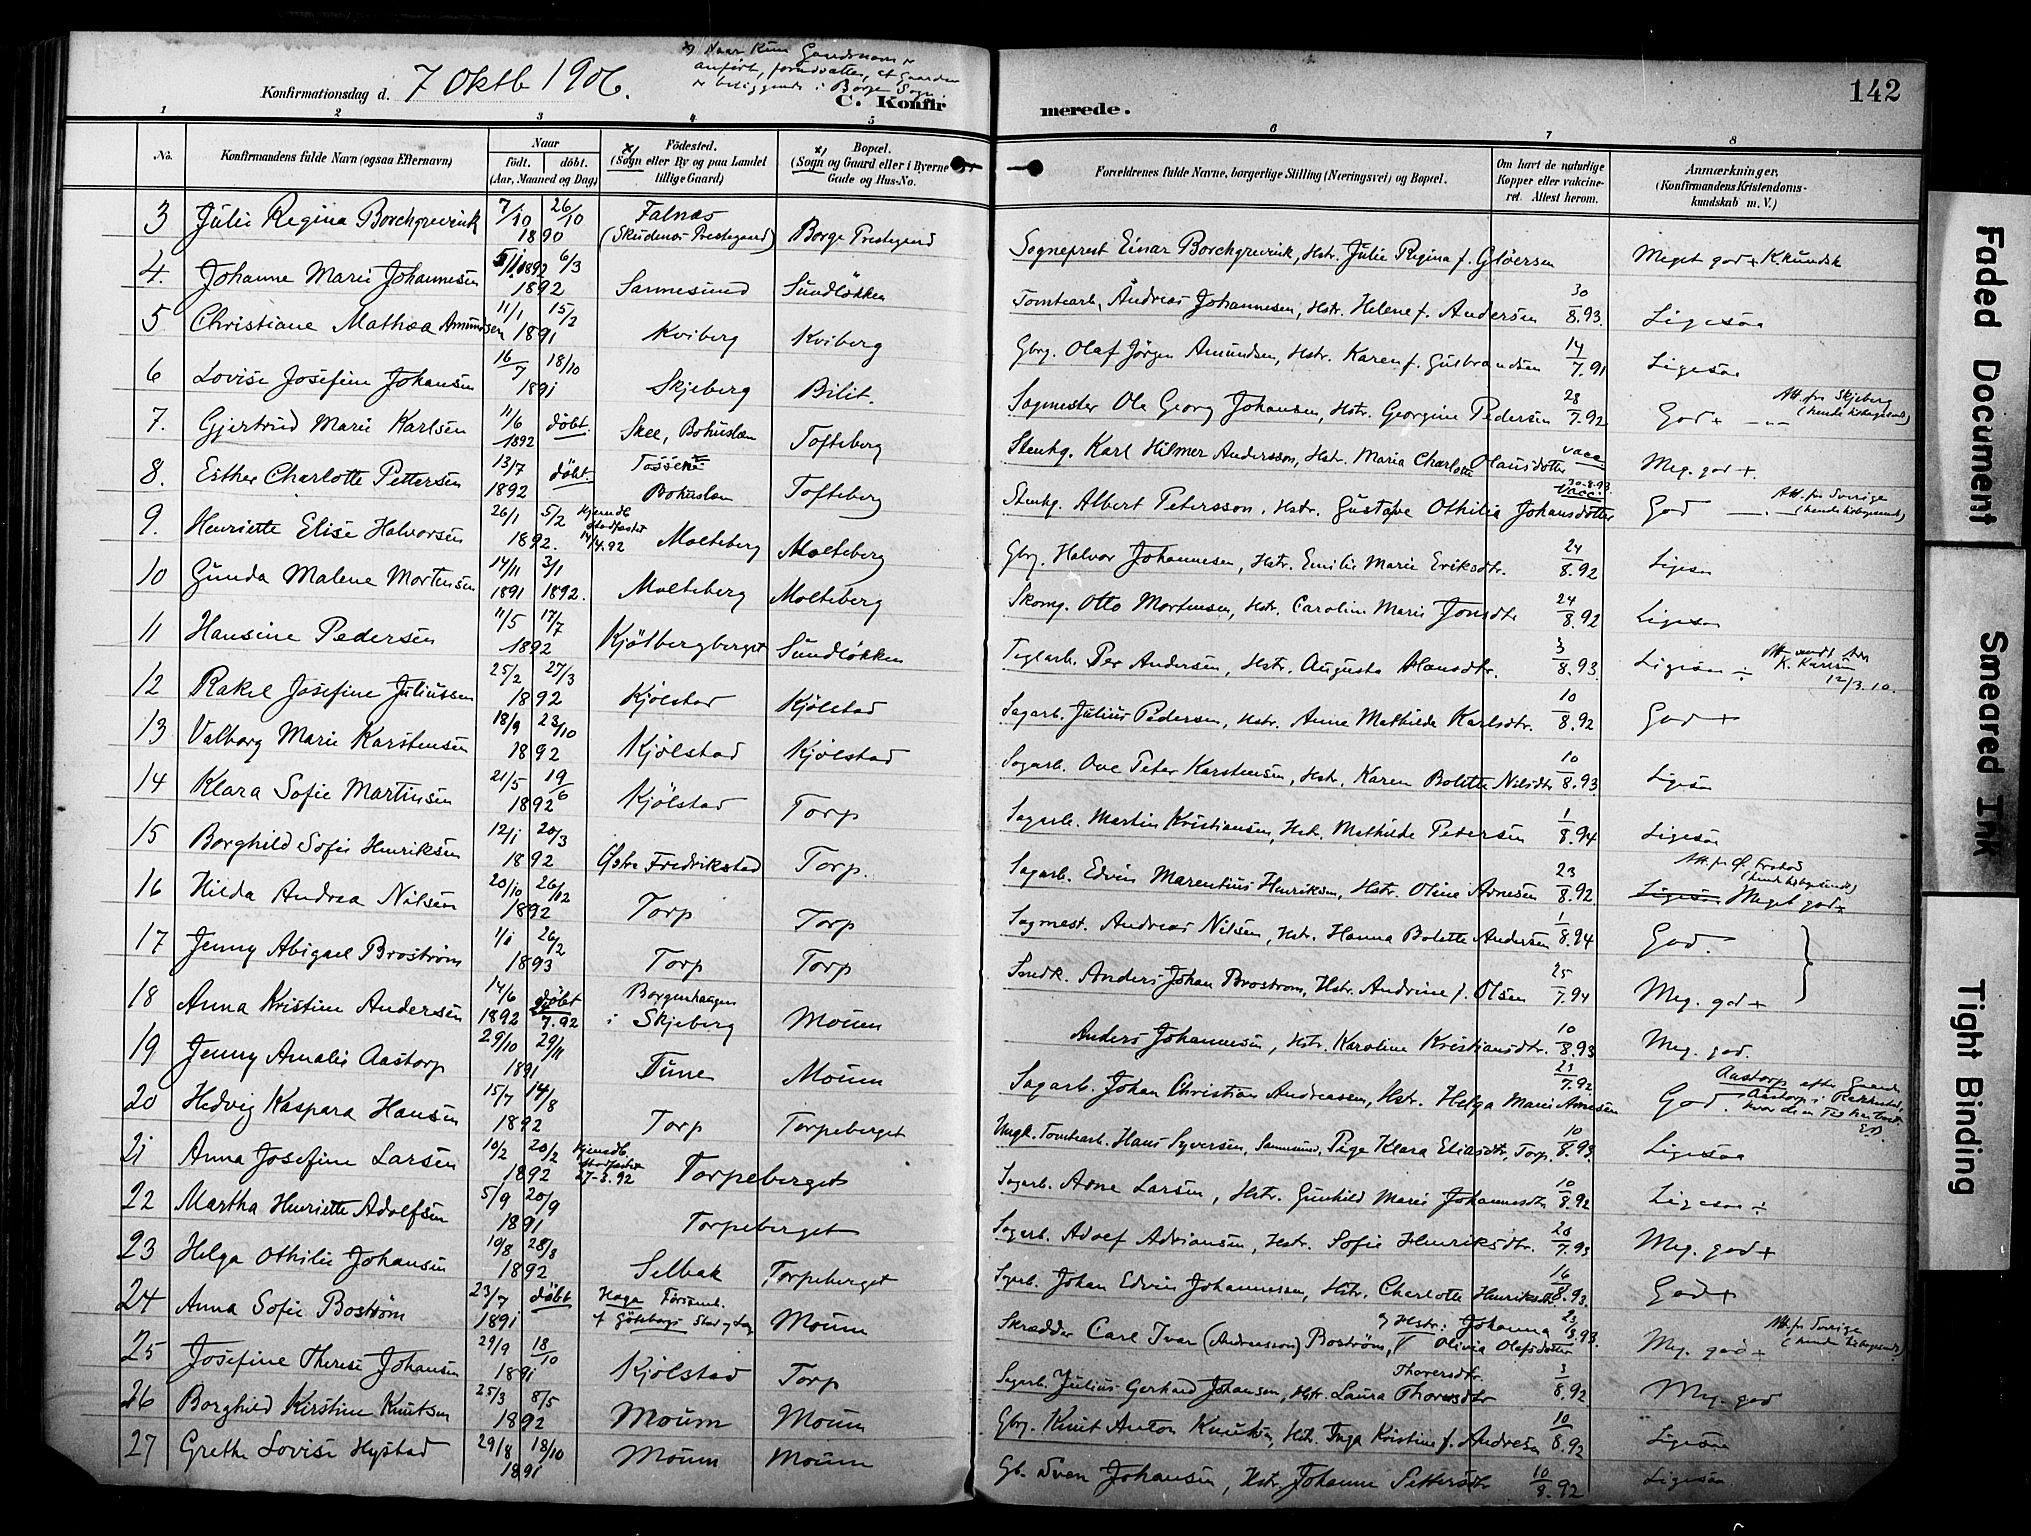 Konfirmationsdag d. 7 Oktb 1906.
x) Naar kun Gaardsnavn er
anført, forudsættes, at Gaarden
er beliggende i Borge Sogn.
C. Konfirmerede.
142
1 2 3 4 5 6 7 8
No.
Konfirmandens fulde Navn (ogsaa Efternavn)
Naar
født. døbt.
(Aar, Maaned og Dag)
x) Födested.
(Sogn eller By og paa Landet
tillige Gaard)
x) Bopæl.
(Sogn og Gaard eller i Byerne
Gade og Hus-No.
Forældrenes fulde Navne, borgerlige Stilling (Næringsvei) og Bopæl.
Om havt de naturlige
Kopper eller vakcine-
ret. Attest herom.
Anmærkninger.
(Konfirmandens Kristendoms-
kundskab m. V.)
3 Julie Regina Borchgrevink 7/10 26/10 1890 Falnæs (Skudenes Prestegaard) Borge Prestegaard Sogneprest Einar Borchgrevink, Hstr. Julie Regina f. Gløersen Meget god + K.kundsk
4. Johanne Marie Johannesen 5/1 1892 6/3 1892 Sannesund Sundløkken Tomtearb. Andreas Johannesen, Hstr. Helene f. Andersen 30/8.93. Ligesaa
5 Christiane Mathea Amundsen 11/1 15/2 1891 Kviberg Kviberg Gbrg. Olaf Jörgen Amundsen, Hstr. Karen f. Gulbrandsen 14/7.91 Ligesaa
6 Lovise Josefine Johansen 16/7 18/10 1891 Skjeberg Bilit. Sagmester Ole Georg Johansen, Hstr. Georgine Pedersen 28/7.92 God + Att. fra Skjeberg
7. Gjertrud Marie Karlsen 11/6 1892 døbt. Skee, Bohuslæn Tofteberg Stenhg. Karl Hilmer Andersson, Hstr. Maria Charlotte Olausdotter vacc. Meg. god +.
8. Esther Charlotte Pettersen 13/7 1892 døbt. Tossene Bohuslen Tofteberg Stenhg. Albert Petersson, Hstr. Gustava Othilia Johansdotter 30.8.93. Vacc. God Att. fra Sverige
9. Henriette Elise Halvorsen 26/1 5/2 1892. Hjemdb. stadfæstet 14/4.92 Molteberg Molteberg Gbrg. Halvor Johannesen, Hstr. Emilie Marie Eriksdtr. 24/8.92 Ligesaa
10 Gunda Malene Mortensen 14/11 1891 3/1 1892. Molteberg Molteberg Skomg. Otto Mortensen, Hstr. Caroline Marie Jonsdtr 24/8.92 Ligesaa
11 Hansine Pedersen 11/5 17/7 1892 Kjölbergberget Sundløkken Teglarb. Per Andersen, Hstr. Augusta Hansdtr. 3/8.93. Ligesaa ÷ K. Karlsen 12/3.10.
12 Rakel Josefine Juliussen 25/2 27/3 1892 Kjølstad Kjølstad Sagarb. Julius Pedersen, Hstr. Anne Mathilde Karlsdtr. 10/8.92 God +
13 Valborg Marie Karstensen 18/9 23/10 1892 Kjølstad Kjølstad Sagarb. Ove Peter Karstensen, Hstr. Karen Bolette Nilsdtr 10/8.93 Ligesaa
14 Klara Sofie Martinsen 21/5 19/6 1892 Kjølstad Torp Sagarb. Martin Kristiansen, Hstr. Mathilde Pedersen 1/8.94 Ligesaa
15 Borghild Sofie Henriksen 12/1 20/3 1892 Østre Fredrikstad Torp. Sagarb. Edvin Marentius Henriksen, Hstr. Oline Arnesen 23/8.92 Ligesaa Meget god +
16 Hilda Andrea Nilsen 20/10 26/12 1892 Torp Torp Sagmest. Andreas Nilsen, Hstr. Hanna Bolette Andersen 1/8.94 God.
17 Jenny Abigael Broström 1/1 26/2 1893 Torp Torp Smedk. Anders Johan Brostrom, Hstr. Andrine f. Olsen 25/7.94 Meg. god +
18 Anna Kristine Andersen 14/6 1892 døbt 7.92 Borgenhaugen i Skjeberg Moum Anders Johannesen, Hstr. Karoline Kristiansdtr. 10/8.93 Meg. god.
19 Jenny Amalie Aastorp 29/10 29/11 1891 Tune Moum Sagarb. Johan Christian Andreassen, Hstr. Helga Marie Arnesen 23/7.92 God. Aastorp efter Gaarden Aastorp i Rakkestad,
20 Hedvig Kaspara Hansen 15/7 14/8 1892 Torp Torpeberget Ungk. Tomtearb. Hans Syversen, Sannesund, Pige Klara Eliasdtr, Torp. 10/8.93. Ligesaa
21 Anna Josefine Larsen 10/2 20/2 1892 Hjemdb. stadfæstet 27-3.92 Torpeberget Sagarb. Arne Larsen, Hstr. Gunhild Marie Johannesdtr 10/8.92 Ligesaa ÷
22 Martha Henriette Adolfsen 5/9 20/9 1891 Torpeberget Sagarb. Adolf Adriansen, Hstr. Sofie Henriksdtr. 20/7.93 Meg. god +
23 Helga Othilie Johansen 19/8 28/8 1892 Selbak Torpeberget Sagarb. Johan Edvin Johannesen, Hstr. Charlotte Henriksdtr 16/8.93. God +
24 Anna Sofie Boström 23/7 1891 døbt Haga Församl. af Göteborgs Stad Moum Skrædder Carl Ivar (Andersson) Boström, og Hstr: Johanna Olivia Olafsdotter 23/8.93. Meg. god + Att. fra Sverige
25 Josefine Therese Johansen 29/9 18/10 1891 Kjølstad Torp Sagarb. Julius Gerhard Johansen, Hstr. Laura Thoresdtr Thoversdtr. 3/8.92 Meg. god
26 Borghild Kirstine Knutsen 25/3 8/5 1892 Moum Moum Gbrg. Knut Anton Knutsen, Hstr. Inga Kristine f. Andresen 10/8.92 Ligesaa
27 Grethe Lovise Hystad 29/8 18/10 1891 Moum Moum Gb. Sven Johansen, Hstr. Johanne Pettersdtr 10/8.92 Ligesaa
Faded Document
Smeared Ink
Tight Binding